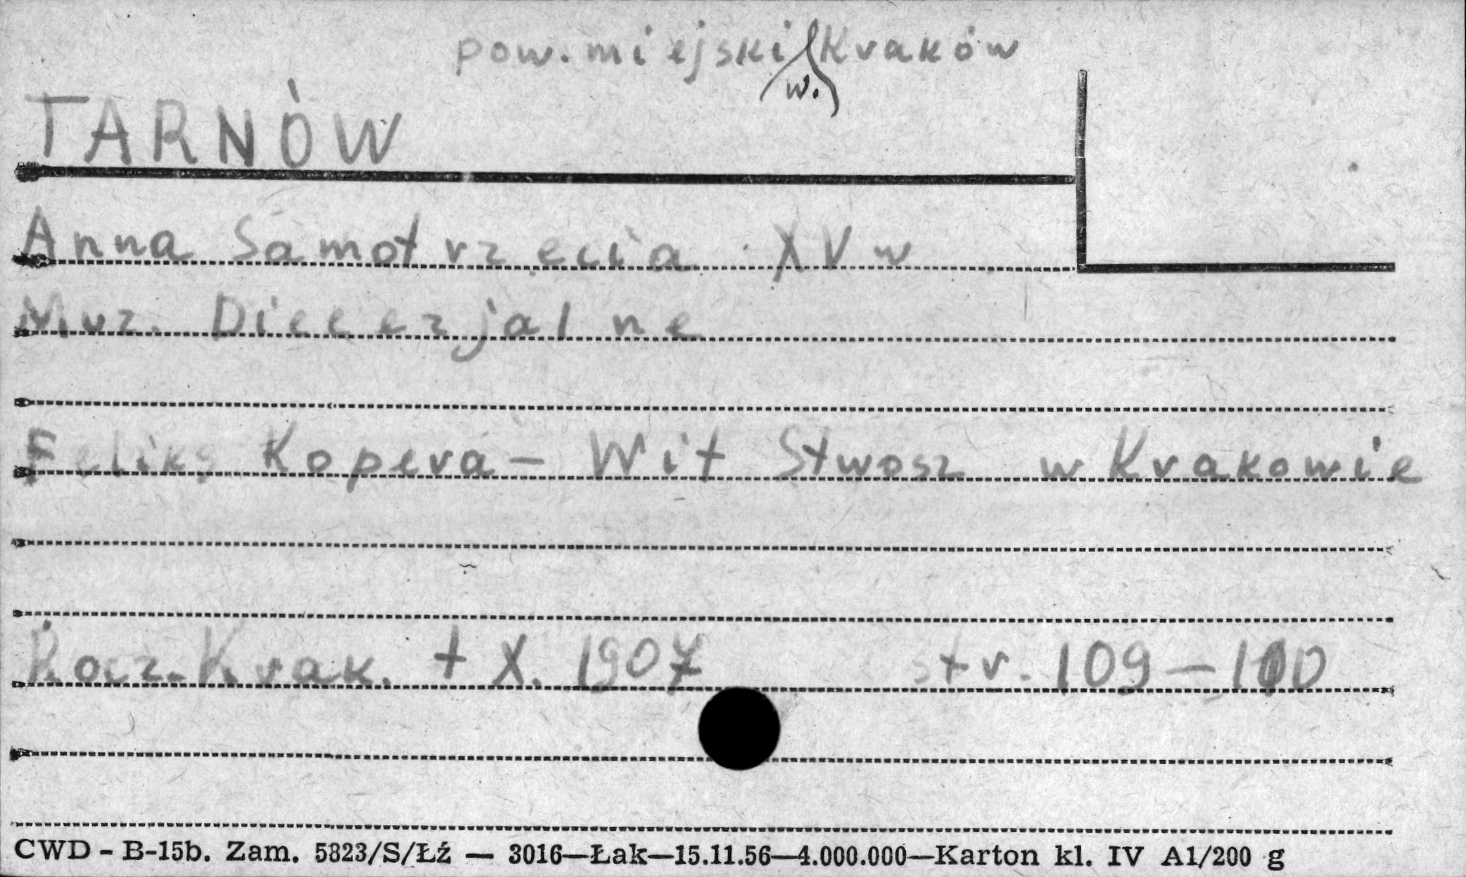 pow. miejski w. Kraków
TARNÓW
Anna Samotrzecia XV w
Muz. Diecezjalne
Feliks Kopera - Wit Stwosz w Krakowie
Rocz. Krak. t X. 1907 str. 109-110
CWD - B-15b. Zam. 5823/S/Łź — 3016—Łak—15.11.56—4.000.000—Karton kl. IV A1/200 g